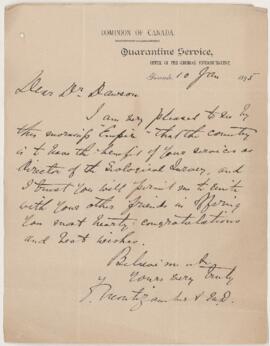 DOMINION OF CANADA.
Quarantine Service,
OFFICE OF THE GENERAL SUPERINTENDENT,
10 Jan 1895
Dear Dr. Dawson
I am very pleased to see by
this morning's Empire that the country
is to have the benefit of your services as
Director of the Geological Survey, and
I trust you will permit me to unite
with your other friends in offering
you most hearty congratulations
and best wishes.
Believe me
Yours very truly
F. Montizambert M.D.